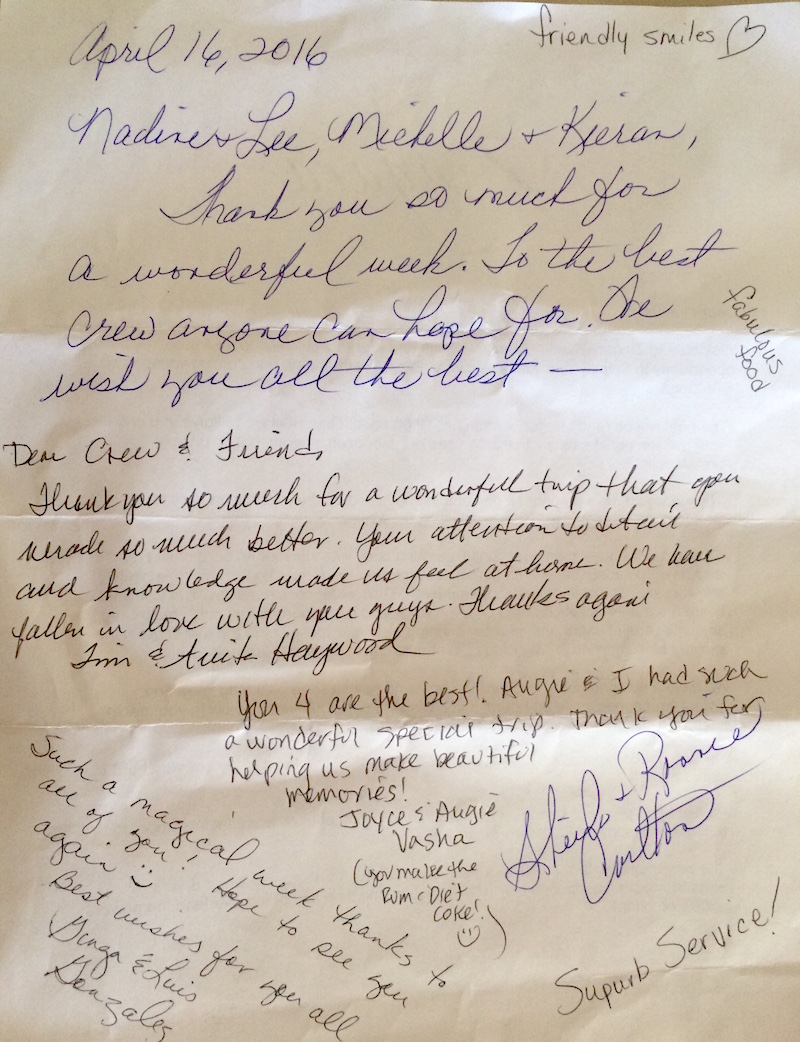 April 16, 2016
friendly smiles ♡
Nadine + Lee, Michelle + Kieran,
Thank you so much for
a wonderful week. To the best
crew anyone can hope for. We
wish you all the best —
fabulous
food
Dear Crew & Friends
Thank you so much for a wonderful trip that you
made so much better. Your attention to detail
and knowledge made us feel at home. We have
fallen in love with you guys. Thanks again
Tim & Anita Haywood
You 4 are the best! Augie & I had such
a wonderful special trip. Thank you for
helping us make beautiful
memories!
Joyce & Augie
Vasha
(you make the
Rum & Diet
Coke!
☺)
Such a magical week thanks to
all of you! Hope to see you
again ☺
Best wishes for you all
& Luis
Gonzalez
Sheila + Ronnie
Carlton
Supurb Service!